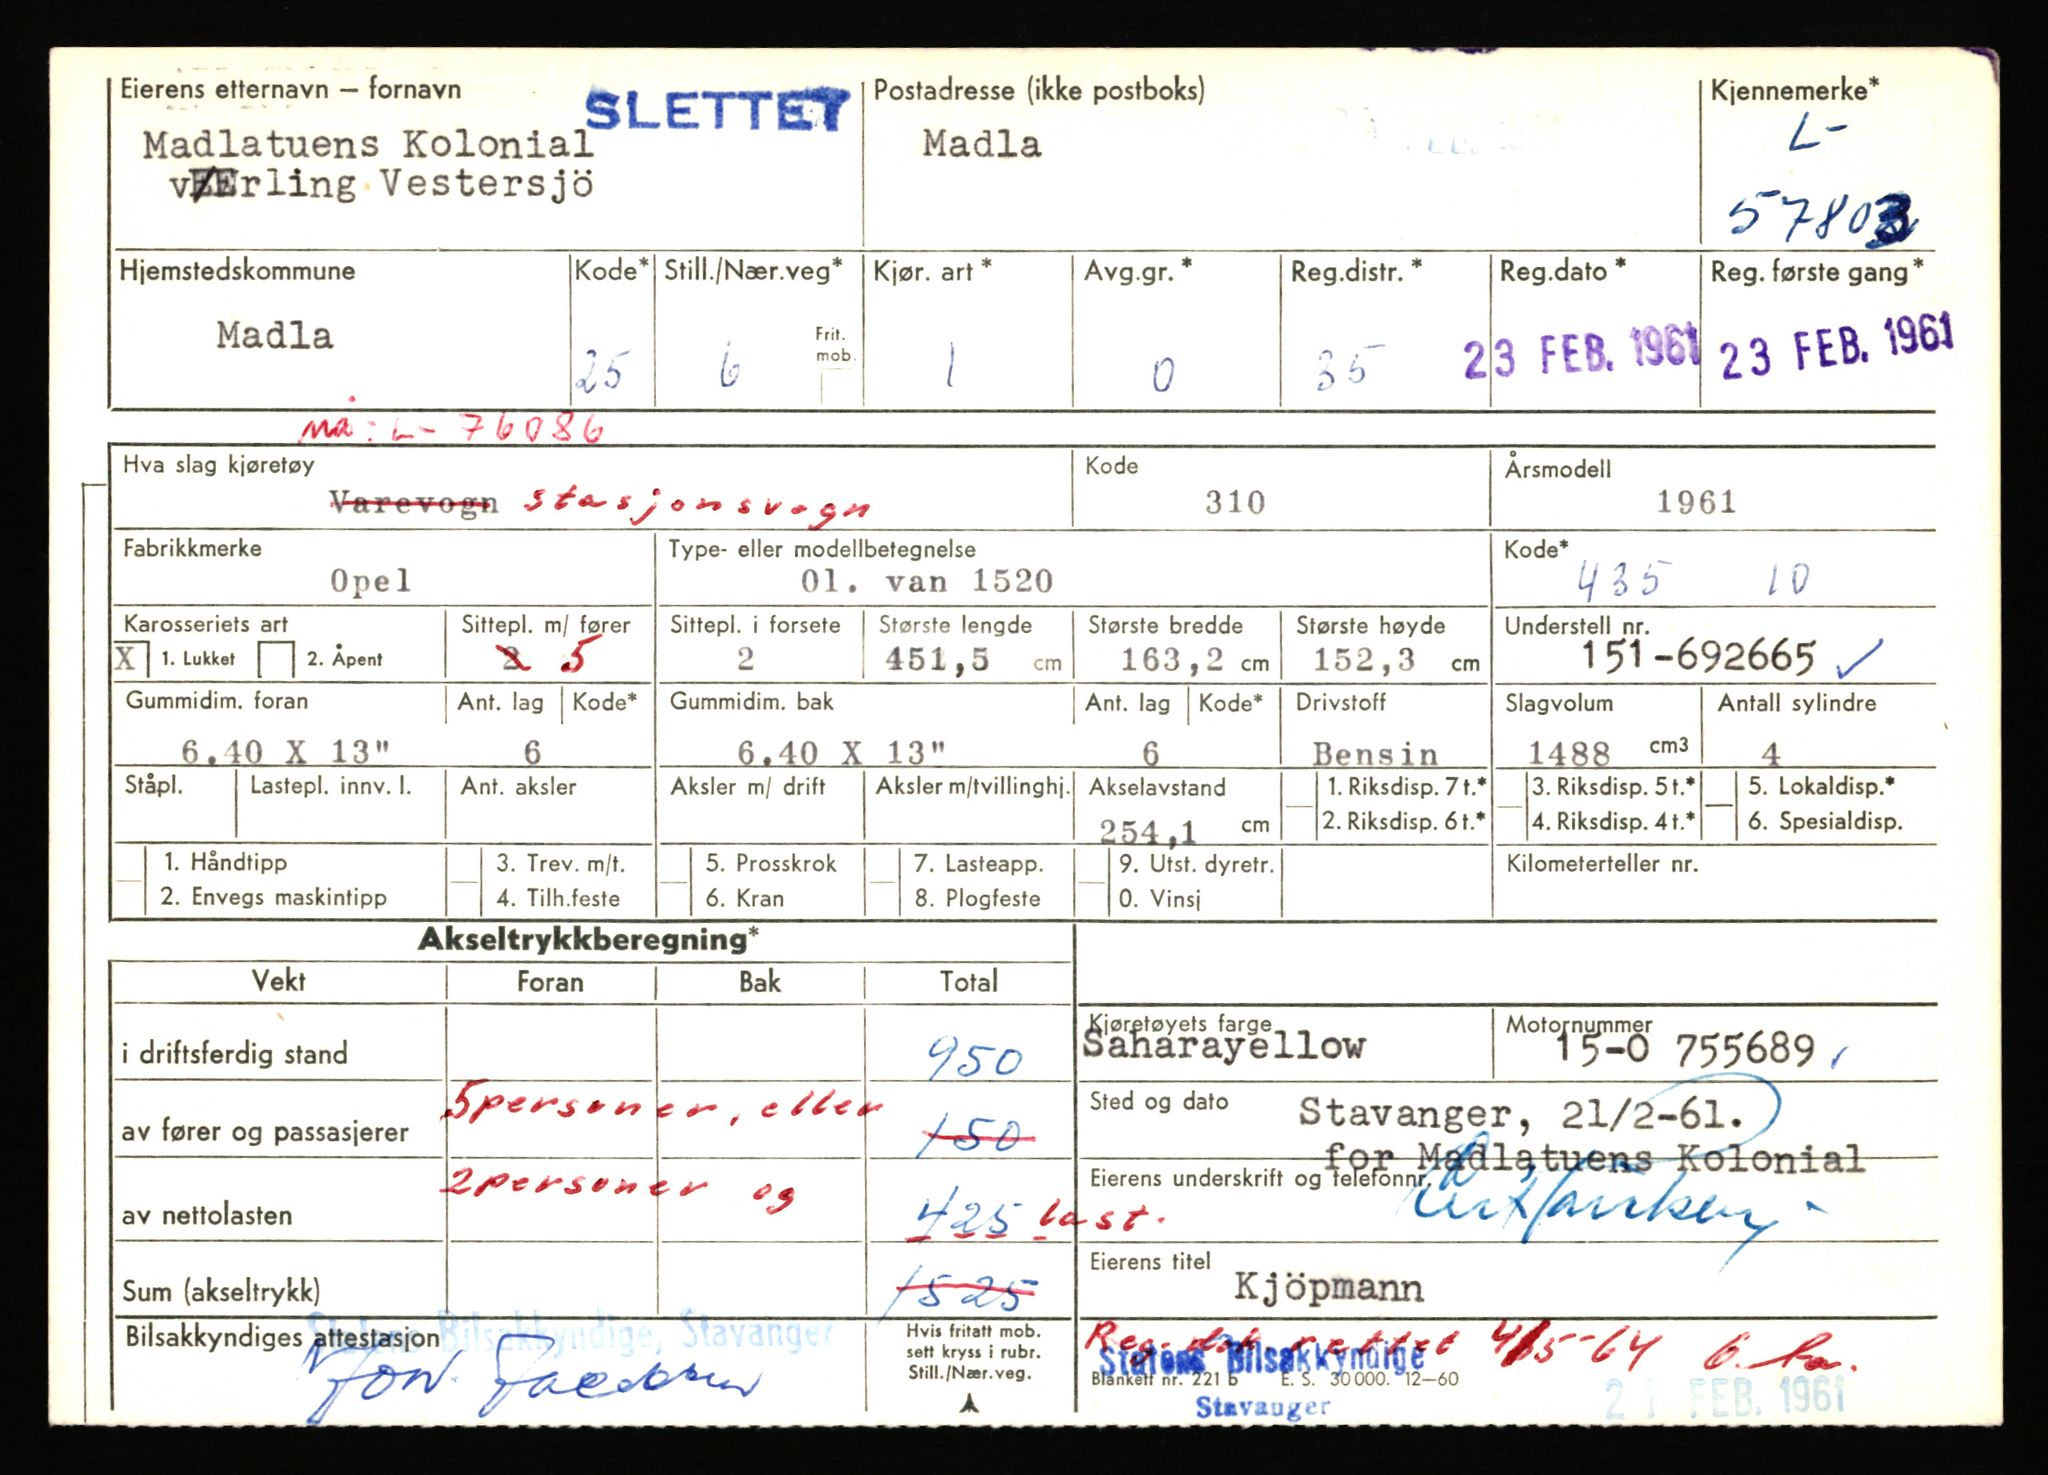 Eierens etternavn – fornavn SLETTET Postadresse (ikke postboks) Kjennemerke*
Madlatuens Kolonial Madla L-
v/Erling Vestersjö 57803
Hjemstedskommune Kode* Still./Nær.veg* Kjør. art * Avg.gr. * Reg.distr. * Reg.dato * Reg. første gang*
Madla 25 6 Frit. mob. 1 0 35 23 FEB. 1961 23 FEB. 1961
nå: L- 76086
Hva slag kjøretøy Kode Årsmodell
Varevogn stasjonsvogn 310 1961
Fabrikkmerke Type- eller modellbetegnelse Kode*
Opel Ol. van 1520 435 10
Karosseriets art Sittepl. m/ fører Sittepl. i forsete Største lengde Største bredde Største høyde Understell nr.
X 1. Lukket 2. Åpent 2 5 2 451,5 cm 163,2 cm 152,3 cm 151-692665 ✓
Gummidim. foran Ant. lag Kode* Gummidim. bak Ant. lag Kode* Drivstoff Slagvolum Antall sylindre
6.40 X 13" 6 6.40 X 13" 6 Bensin 1488 cm3 4
Ståpl. Lastepl. innv. l. Ant. aksler Aksler m/ drift Aksler m/tvillinghj. Akselavstand 1. Riksdisp. 7 t.* 3. Riksdisp. 5 t.* 5. Lokaldisp.*
254,1 cm 2. Riksdisp. 6 t.* 4. Riksdisp. 4 t.* 6. Spesialdisp.
1. Håndtipp 3. Trev. m/t. 5. Prosskrok 7. Lasteapp. 9. Utst. dyretr. Kilometerteller nr.
2. Envegs maskintipp 4. Tilh.feste 6. Kran 8. Plogfeste 0. Vinsj
Akseltrykkberegning*
Vekt Foran Bak Total
Kjøretøyets farge Motornummer
i driftsferdig stand 950 Saharayellow 15-0 755689
5 personer, eller Sted og dato Stavanger, 21/2-61.
av fører og passasjerer 150
for Madlatuens Kolonial
2 personer og Eierens underskrift og telefonnr.
av nettolasten 425 last.
Eierens titel
Sum (akseltrykk) 1525 Kjöpmann
Statens Bilsakkyndige, Stavanger
Bilsakkyndiges attestasjon Hvis fritatt mob. sett kryss i rubr. Still./Nær.veg. Reg. dok. rettet 4/5-64
Statens Bilsakkyndige
Blankett nr. 221 b E. S. 30 000. 12–60
Stavanger 21 FEB. 1961